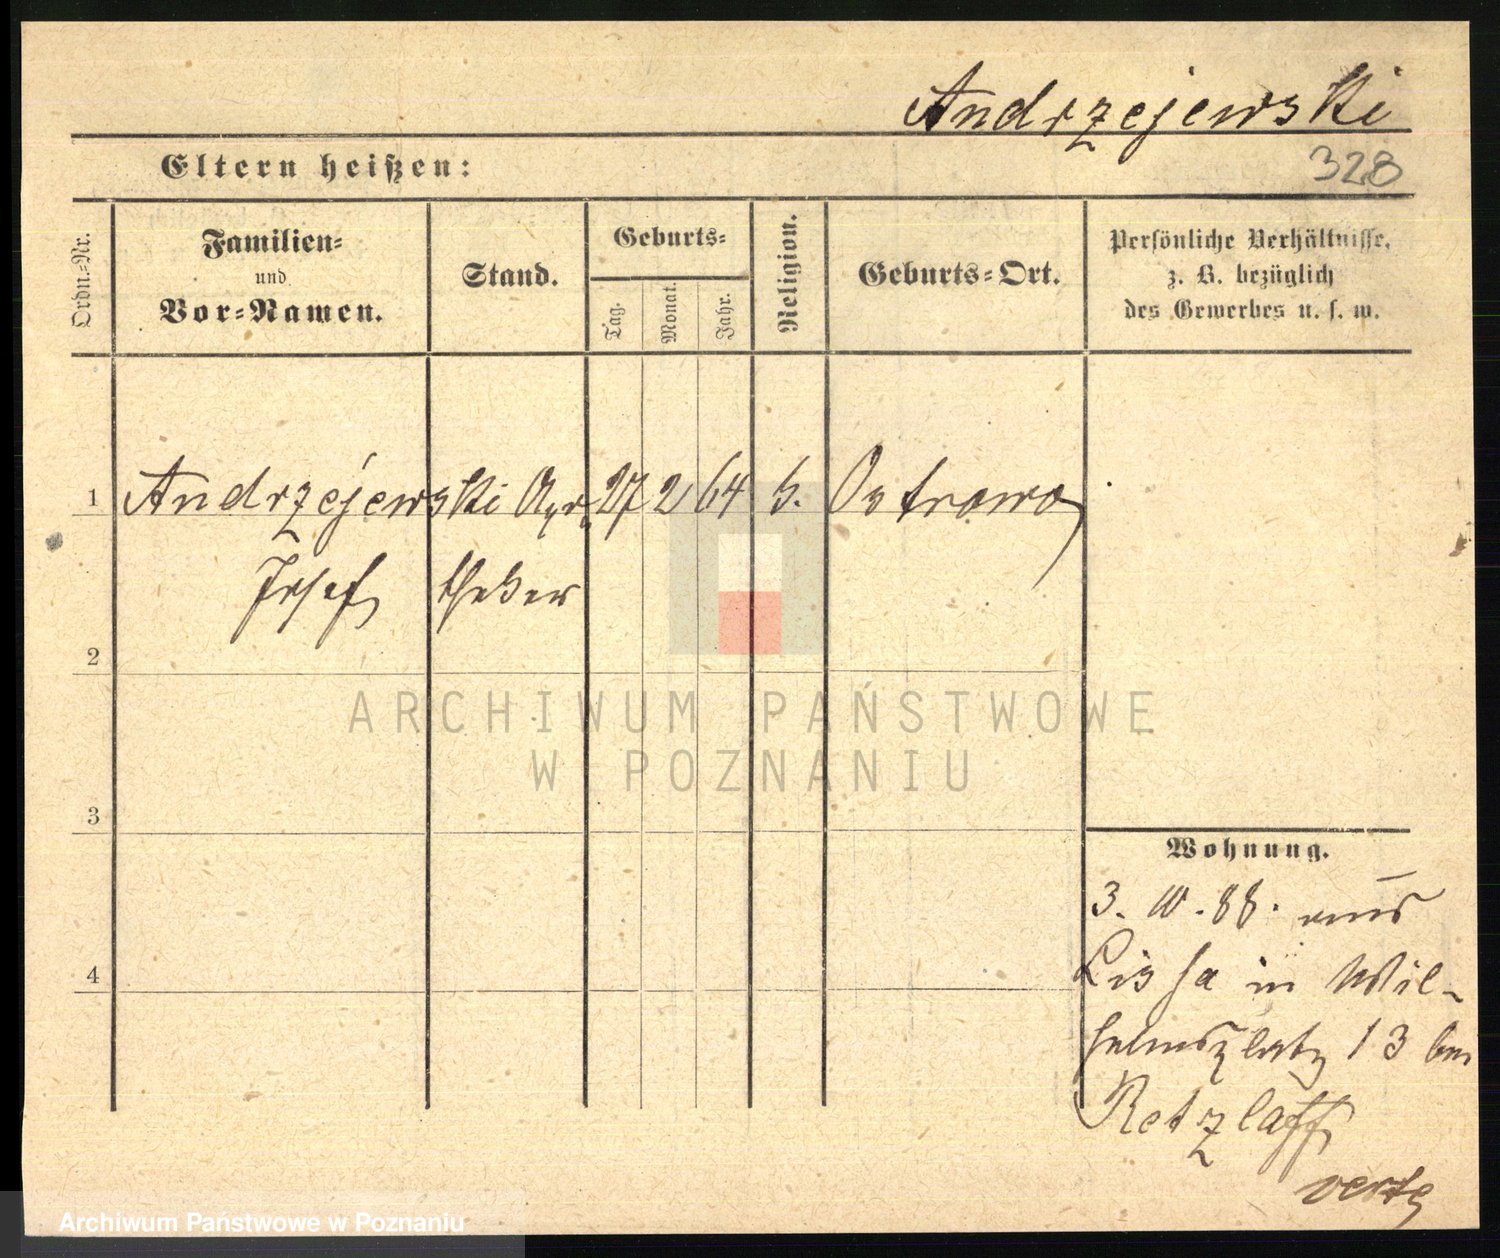 Andrzejewski
Eltern heißen:
328
Ordn.-Nr.
Familien-
und
Vor-Namen.
Stand.
Geburts-
Tag.
Monat.
Jahr.
Religion.
Geburts-Ort.
Persönliche Verhältnisse,
z. B. bezüglich
des Gewerbes u. s. w.
1 Andrzejewski Apo 27 2 64 k. Ostrowo
Josef theker
2
3
4
Wohnung.
3. 10. 88. aus
Lissa in Wil-
helmsplatz 13 bei
Retzlaff
verte
ARCHIWUM PAŃSTWOWE
W POZNANIU
Archiwum Państwowe w Poznaniu